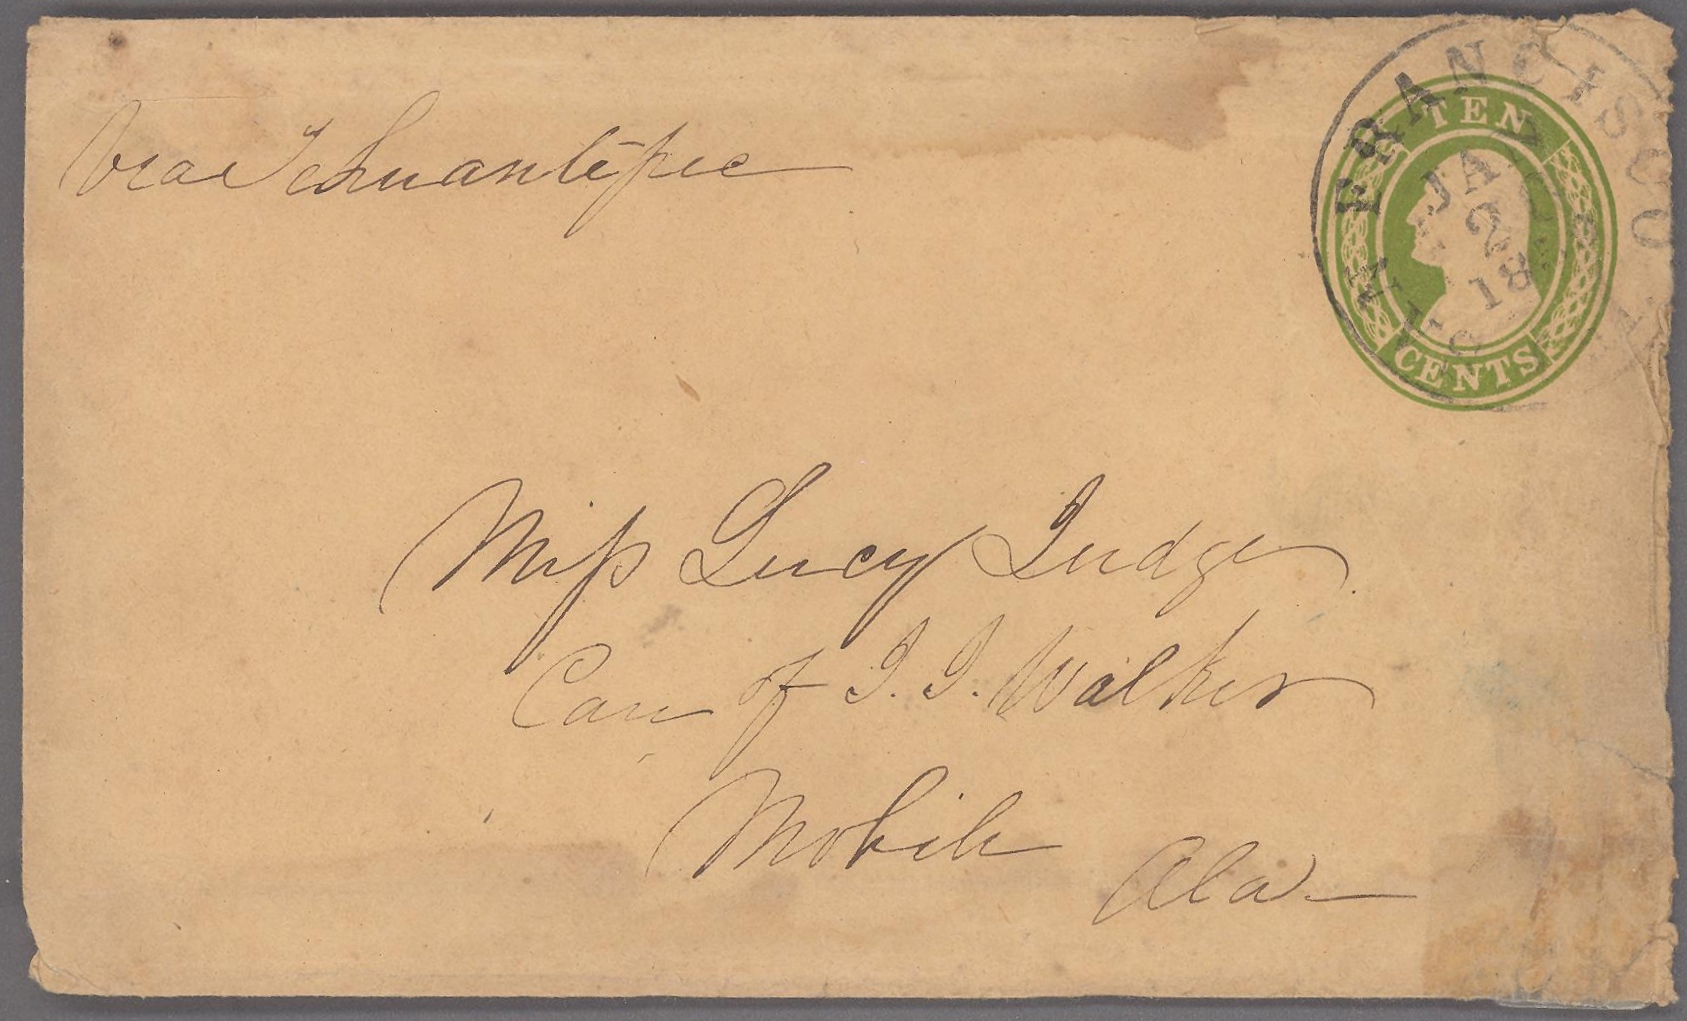 Via Tehuantepec
SAN FRANCISCO CAL
JAN
2
18
TEN
CENTS
Miss Lucy Judge
Care of J. J. Walker
Mobile
Ala